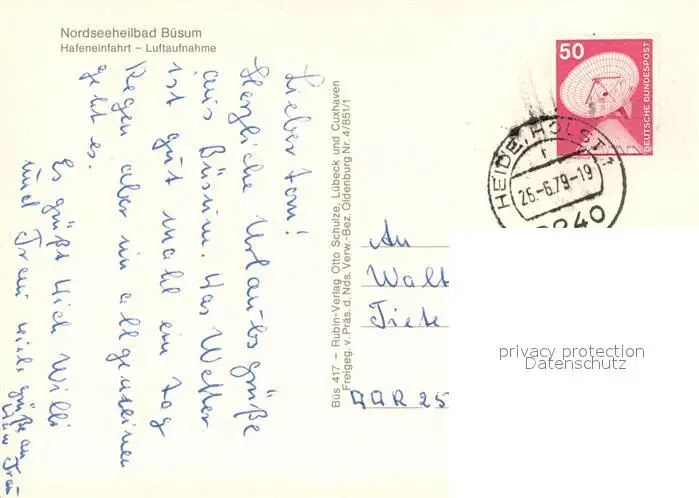 Nordseeheilbad Büsum
Hafeneinfahrt – Luftaufnahme
Lieber Tom!
Herzliche Urlaubsgrüße
aus Büsum. Das Wetter
ist gut mahl ein Tag
Regen aber im allgemeinen
geht es.
Es grüßt dich Willi
und Frau viele grüße an
Frau
Büs 417 – Rubin-Verlag Otto Schulze, Lübeck und Cuxhaven
Freigeg. v. Präs. d. Nds. Verw.-Bez. Oldenburg Nr. 4/851/1
50
DEUTSCHE BUNDESPOST
HEIDE, HOLST 1
r
26.-6.79-19
2240
An
Walt
Tiete
DDR 25
privacy protection
Datenschutz